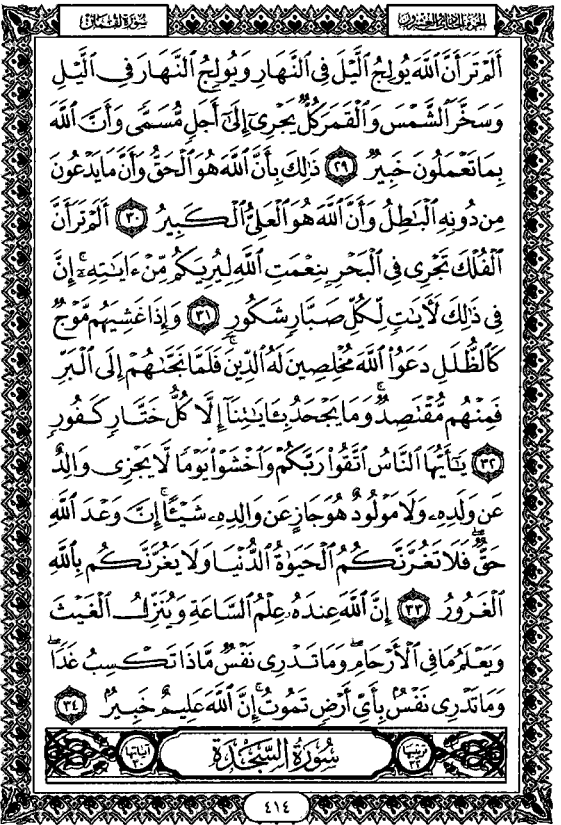 الجزء الحادي والعشرون
سورة لقمان
أَلَمْ تَرَ أَنَّ ٱللَّهَ يُولِجُ ٱلَّيْلَ فِى ٱلنَّهَارِ وَيُولِجُ ٱلنَّهَارَ فِى ٱلَّيْلِ
وَسَخَّرَ ٱلشَّمْسَ وَٱلْقَمَرَ كُلٌّ يَجْرِىٓ إِلَىٰٓ أَجَلٍ مُّسَمًّى وَأَنَّ ٱللَّهَ
بِمَا تَعْمَلُونَ خَبِيرٌ ٢٩ ذَٰلِكَ بِأَنَّ ٱللَّهَ هُوَ ٱلْحَقُّ وَأَنَّ مَا يَدْعُونَ
مِن دُونِهِ ٱلْبَٰطِلُ وَأَنَّ ٱللَّهَ هُوَ ٱلْعَلِىُّ ٱلْكَبِيرُ ٣٠ أَلَمْ تَرَ أَنَّ
ٱلْفُلْكَ تَجْرِى فِى ٱلْبَحْرِ بِنِعْمَتِ ٱللَّهِ لِيُرِيَكُم مِّنْ ءَايَٰتِهِۦٓ ۚ إِنَّ
فِى ذَٰلِكَ لَأٓيَٰتٍ لِّكُلِّ صَبَّارٍ شَكُورٍ ٣١ وَإِذَا غَشِيَهُم مَّوْجٌ
كَٱلظُّلَلِ دَعَوُا۟ ٱللَّهَ مُخْلِصِينَ لَهُ ٱلدِّينَ فَلَمَّا نَجَّىٰهُمْ إِلَى ٱلْبَرِّ
فَمِنْهُم مُّقْتَصِدٌ ۚ وَمَا يَجْحَدُ بِـَٔايَٰتِنَآ إِلَّا كُلُّ خَتَّارٍ كَفُورٍ
٣٢ يَٰٓأَيُّهَا ٱلنَّاسُ ٱتَّقُوا۟ رَبَّكُمْ وَٱخْشَوْا۟ يَوْمًا لَّا يَجْزِى وَالِدٌ
عَن وَلَدِهِۦ وَلَا مَوْلُودٌ هُوَ جَازٍ عَن وَالِدِهِۦ شَيْـًٔا ۚ إِنَّ وَعْدَ ٱللَّهِ
حَقٌّ ۖ فَلَا تَغُرَّنَّكُمُ ٱلْحَيَوٰةُ ٱلدُّنْيَا وَلَا يَغُرَّنَّكُم بِٱللَّهِ
ٱلْغَرُورُ ٣٣ إِنَّ ٱللَّهَ عِندَهُۥ عِلْمُ ٱلسَّاعَةِ وَيُنَزِّلُ ٱلْغَيْثَ
وَيَعْلَمُ مَا فِى ٱلْأَرْحَامِ ۖ وَمَا تَدْرِى نَفْسٌ مَّاذَا تَكْسِبُ غَدًا ۖ
وَمَا تَدْرِى نَفْسٌۢ بِأَىِّ أَرْضٍ تَمُوتُ ۚ إِنَّ ٱللَّهَ عَلِيمٌ خَبِيرٌۢ ٣٤
ترتيبها ٣٢ سُورَةُ السَّجْدَةِ آياتها ٣٠
٤١٤